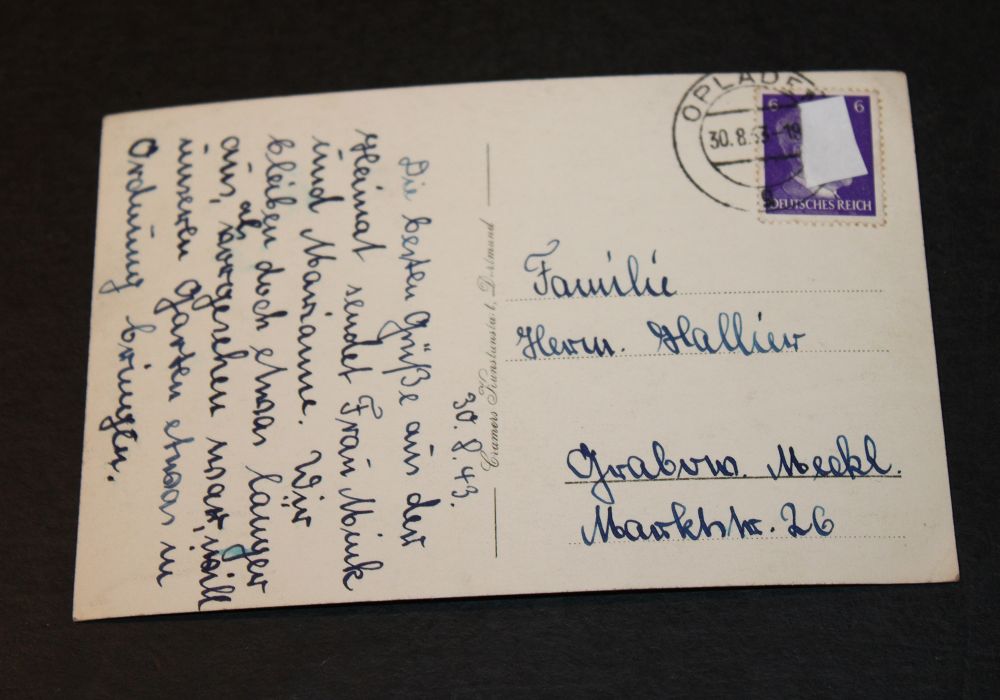 30. 8. 43.
Die besten Grüße aus der
Heimat sendet Frau Mink
und Marianne. Wir
bleiben doch etwas länger
aus, als vorgesehen war, will
unseren Garten etwas in
Ordnung bringen.
Cramers Kunstanstalt, Dortmund
OPLADEN
30.8.43-19
6 6
DEUTSCHES REICH
Familie
Herm. Hallier
Grabow. Meckl.
Marktstr. 26